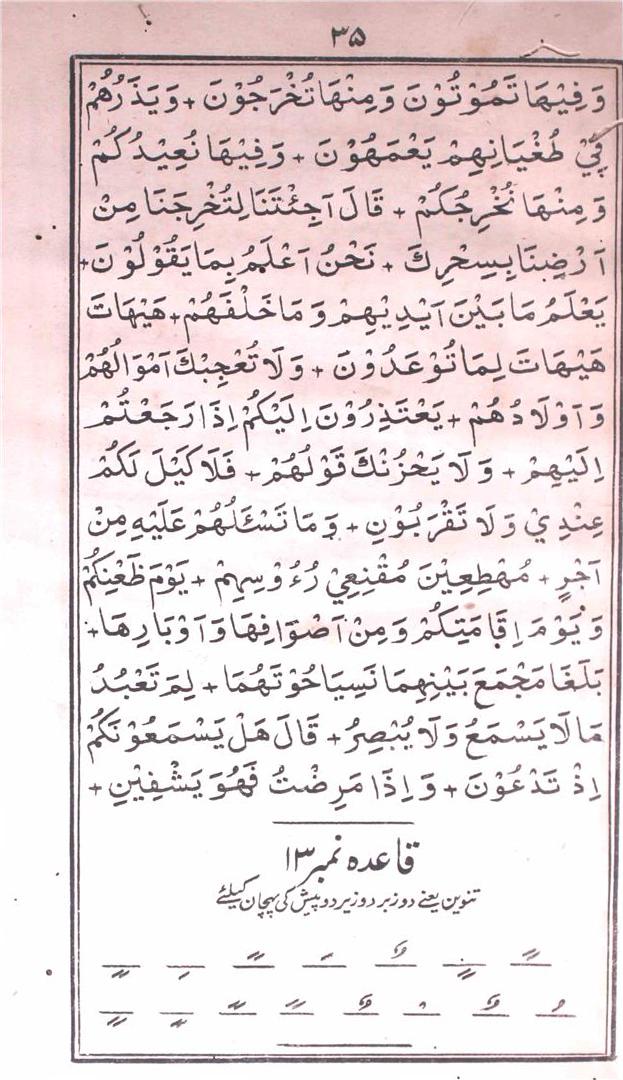 ۳۵
وَفِيْهَا تَمُوْتُوْنَ وَمِنْهَا تُخْرَجُوْنَ + وَيَذَرُهُمْ
فِيْ طُغْيَانِهِمْ يَعْمَهُوْنَ + وَفِيْهَا نُعِيْدُكُمْ
وَمِنْهَا نُخْرِجُكُمْ + قَالَ اَجِئْتَنَا لِتُخْرِجَنَا مِنْ
اَرْضِنَا بِسِحْرِكَ + نَحْنُ اَعْلَمُ بِمَا يَقُوْلُوْنَ +
يَعْلَمُ مَا بَيْنَ اَيْدِيْهِمْ وَمَا خَلْفَهُمْ + هَيْهَاتَ
هَيْهَاتَ لِمَا تُوْعَدُوْنَ + وَلَا تُعْجِبْكَ اَمْوَالُهُمْ
وَاَوْلَادُهُمْ + يَعْتَذِرُوْنَ اِلَيْكُمْ اِذَا رَجَعْتُمْ
اِلَيْهِمْ + وَلَا يَحْزُنْكَ قَوْلُهُمْ + فَلَا كَيْلَ لَكُمْ
عِنْدِيْ وَلَا تَقْرَبُوْنِ + وَمَا تَسْئَلُهُمْ عَلَيْهِ مِنْ
اَجْرٍ + مُهْطِعِيْنَ مُقْنِعِيْ رُءُوْسِهِمْ + يَوْمَ ظَعْنِكُمْ
وَيَوْمَ اِقَامَتِكُمْ وَمِنْ اَصْوَافِهَا وَاَوْبَارِهَا +
بَلَغَا مَجْمَعَ بَيْنِهِمَا نَسِيَا حُوْتَهُمَا + لِمَ تَعْبُدُ
مَا لَا يَسْمَعُ وَلَا يُبْصِرُ + قَالَ هَلْ يَسْمَعُوْنَكُمْ
اِذْ تَدْعُوْنَ + وَاِذَا مَرِضْتُ فَهُوَ يَشْفِيْنِ +
قاعدہ نمبر ۱۳
تنوین یعنے دو زبر دو زیر دو پیش کی پہچان کیلئے